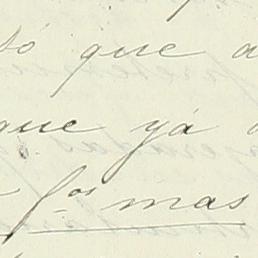 só que a
que yá
f.os mas